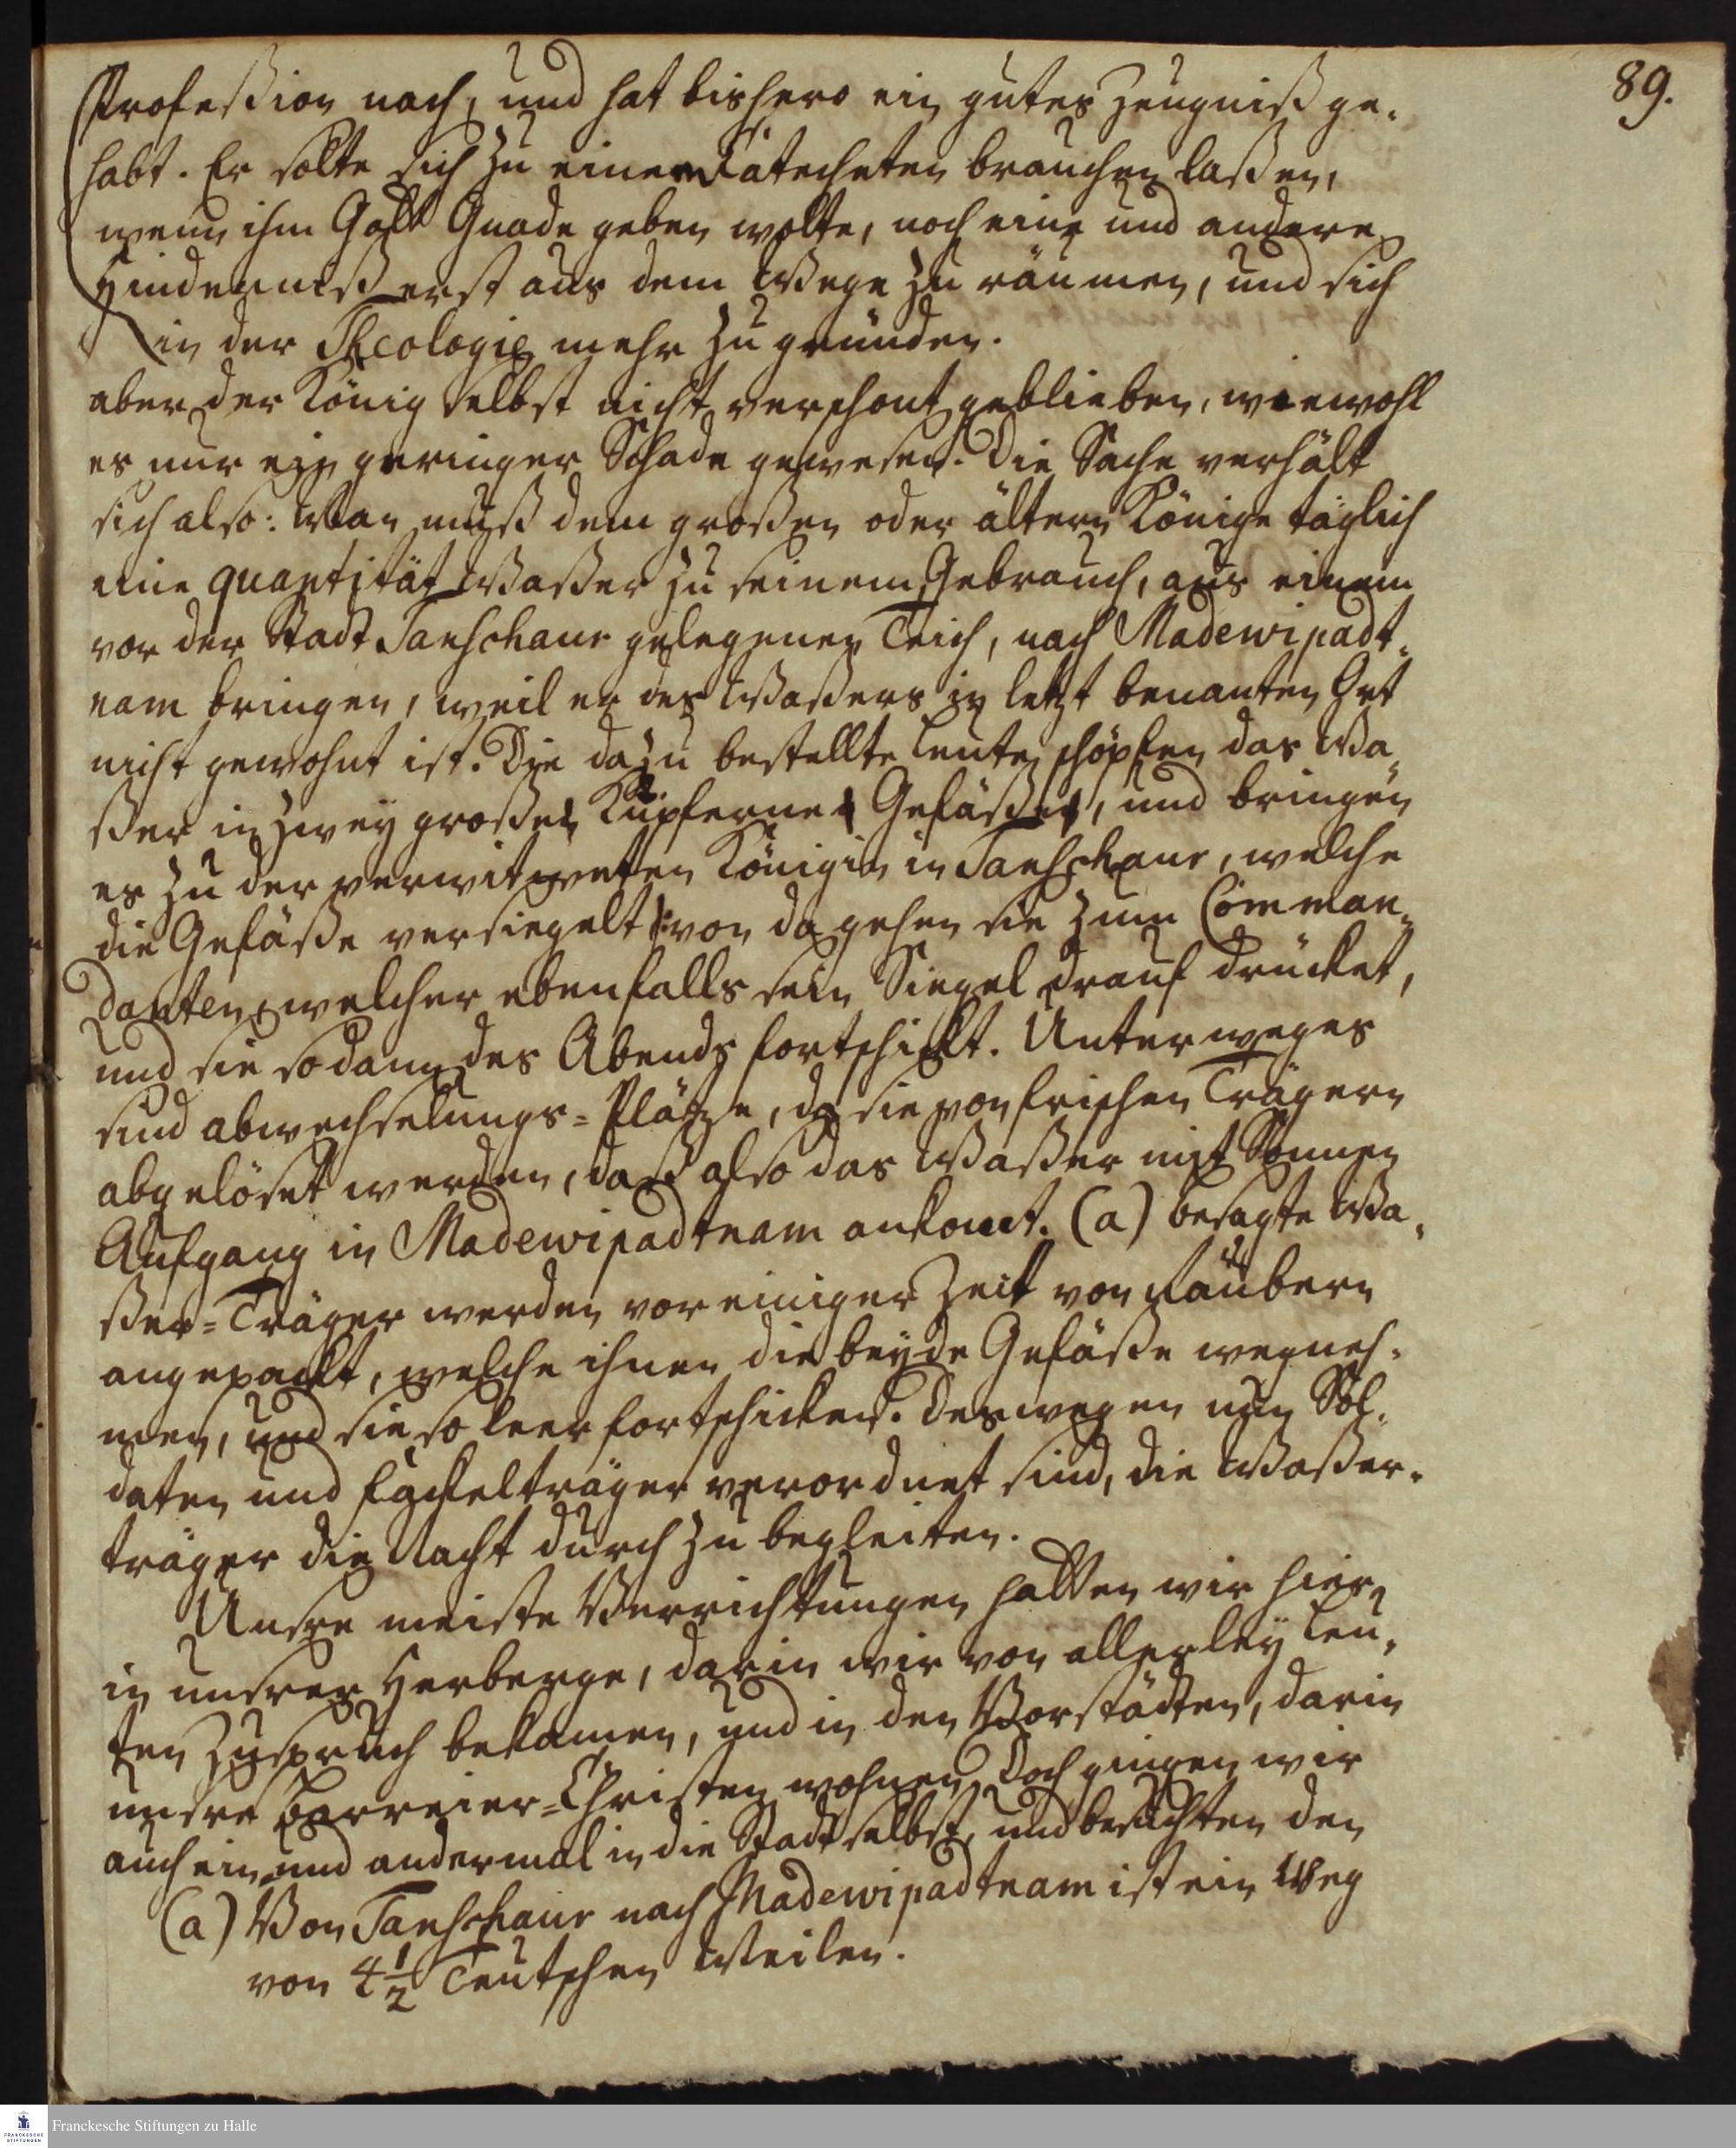 89.
Profeßion nach, und hat bishero ein gutes Zeugniß ge-
habt. Er solte sich zu einem Catecheten brauchen laßen,
wenn ihm Gott Gnade geben wolte, noch eine und andere
Hinderniß erst aus dem Wege zu räumen, und sich
in der Theologie mehr zu gründen.
aber der König selbst nicht verschont geblieben, wiewohl
es nur ein geringer Schade gewesen. Die Sache verhält
sich also: Man muß dem großen oder ältern Könige täglich
eine quantität Waßer zu seinem Gebrauch, aus einem
vor der Stadt Tanschaur gelegenen Teich, nach Madewipadt-
nam bringen, weil er des Waßers in letzt benanten Ort
nicht gewohnt ist. Die dazu bestellte Leute schöpfen das Wa-
ßer in zwey große Kupferne Gefäße, und bringen
es zu der verwitweten Königin in Tanschaur, welche
die Gefäße versiegelt: von da gehen sie zum Comman-
danten, welcher ebenfalls sein Siegel drauf drücket,
und sie sodann des Abends fortschickt. Unterweges
sind abwechselungs-Plätze, da sie von frischen Trägern
abgelöset werden, daß also das Waßer mit Sonnen
Aufgang in Madewipadtnam ankomt. (a) besagte Wa-
ßer-Träger werden vor einiger Zeit von Räubern
angepackt, welche ihnen die beyde Gefäße wegneh-
men, und sie so leer fortschicken. Deswegen nun Sol-
daten und Fackelträger verordnet sind, die Waßer-
träger die Nacht durch zu begleiten.
Unsre meiste Verrichtungen hatten wir hier
in unsrer Herberge, darin wir von allerley Leu-
ten Zuspruch bekamen, und in den Vorstädten, darin
unsre Parreier-Christen wohnen. Doch gingen wir
auch ein und andermal in die Stadt selbst, und besuchten den
(a) Von Tanschaur nach Madewipadtnam ist ein Weg
von 4 1/2 Teutschen Meilen.
Franckesche Stiftungen zu Halle
FRANCKESCHE STIFTUNGEN